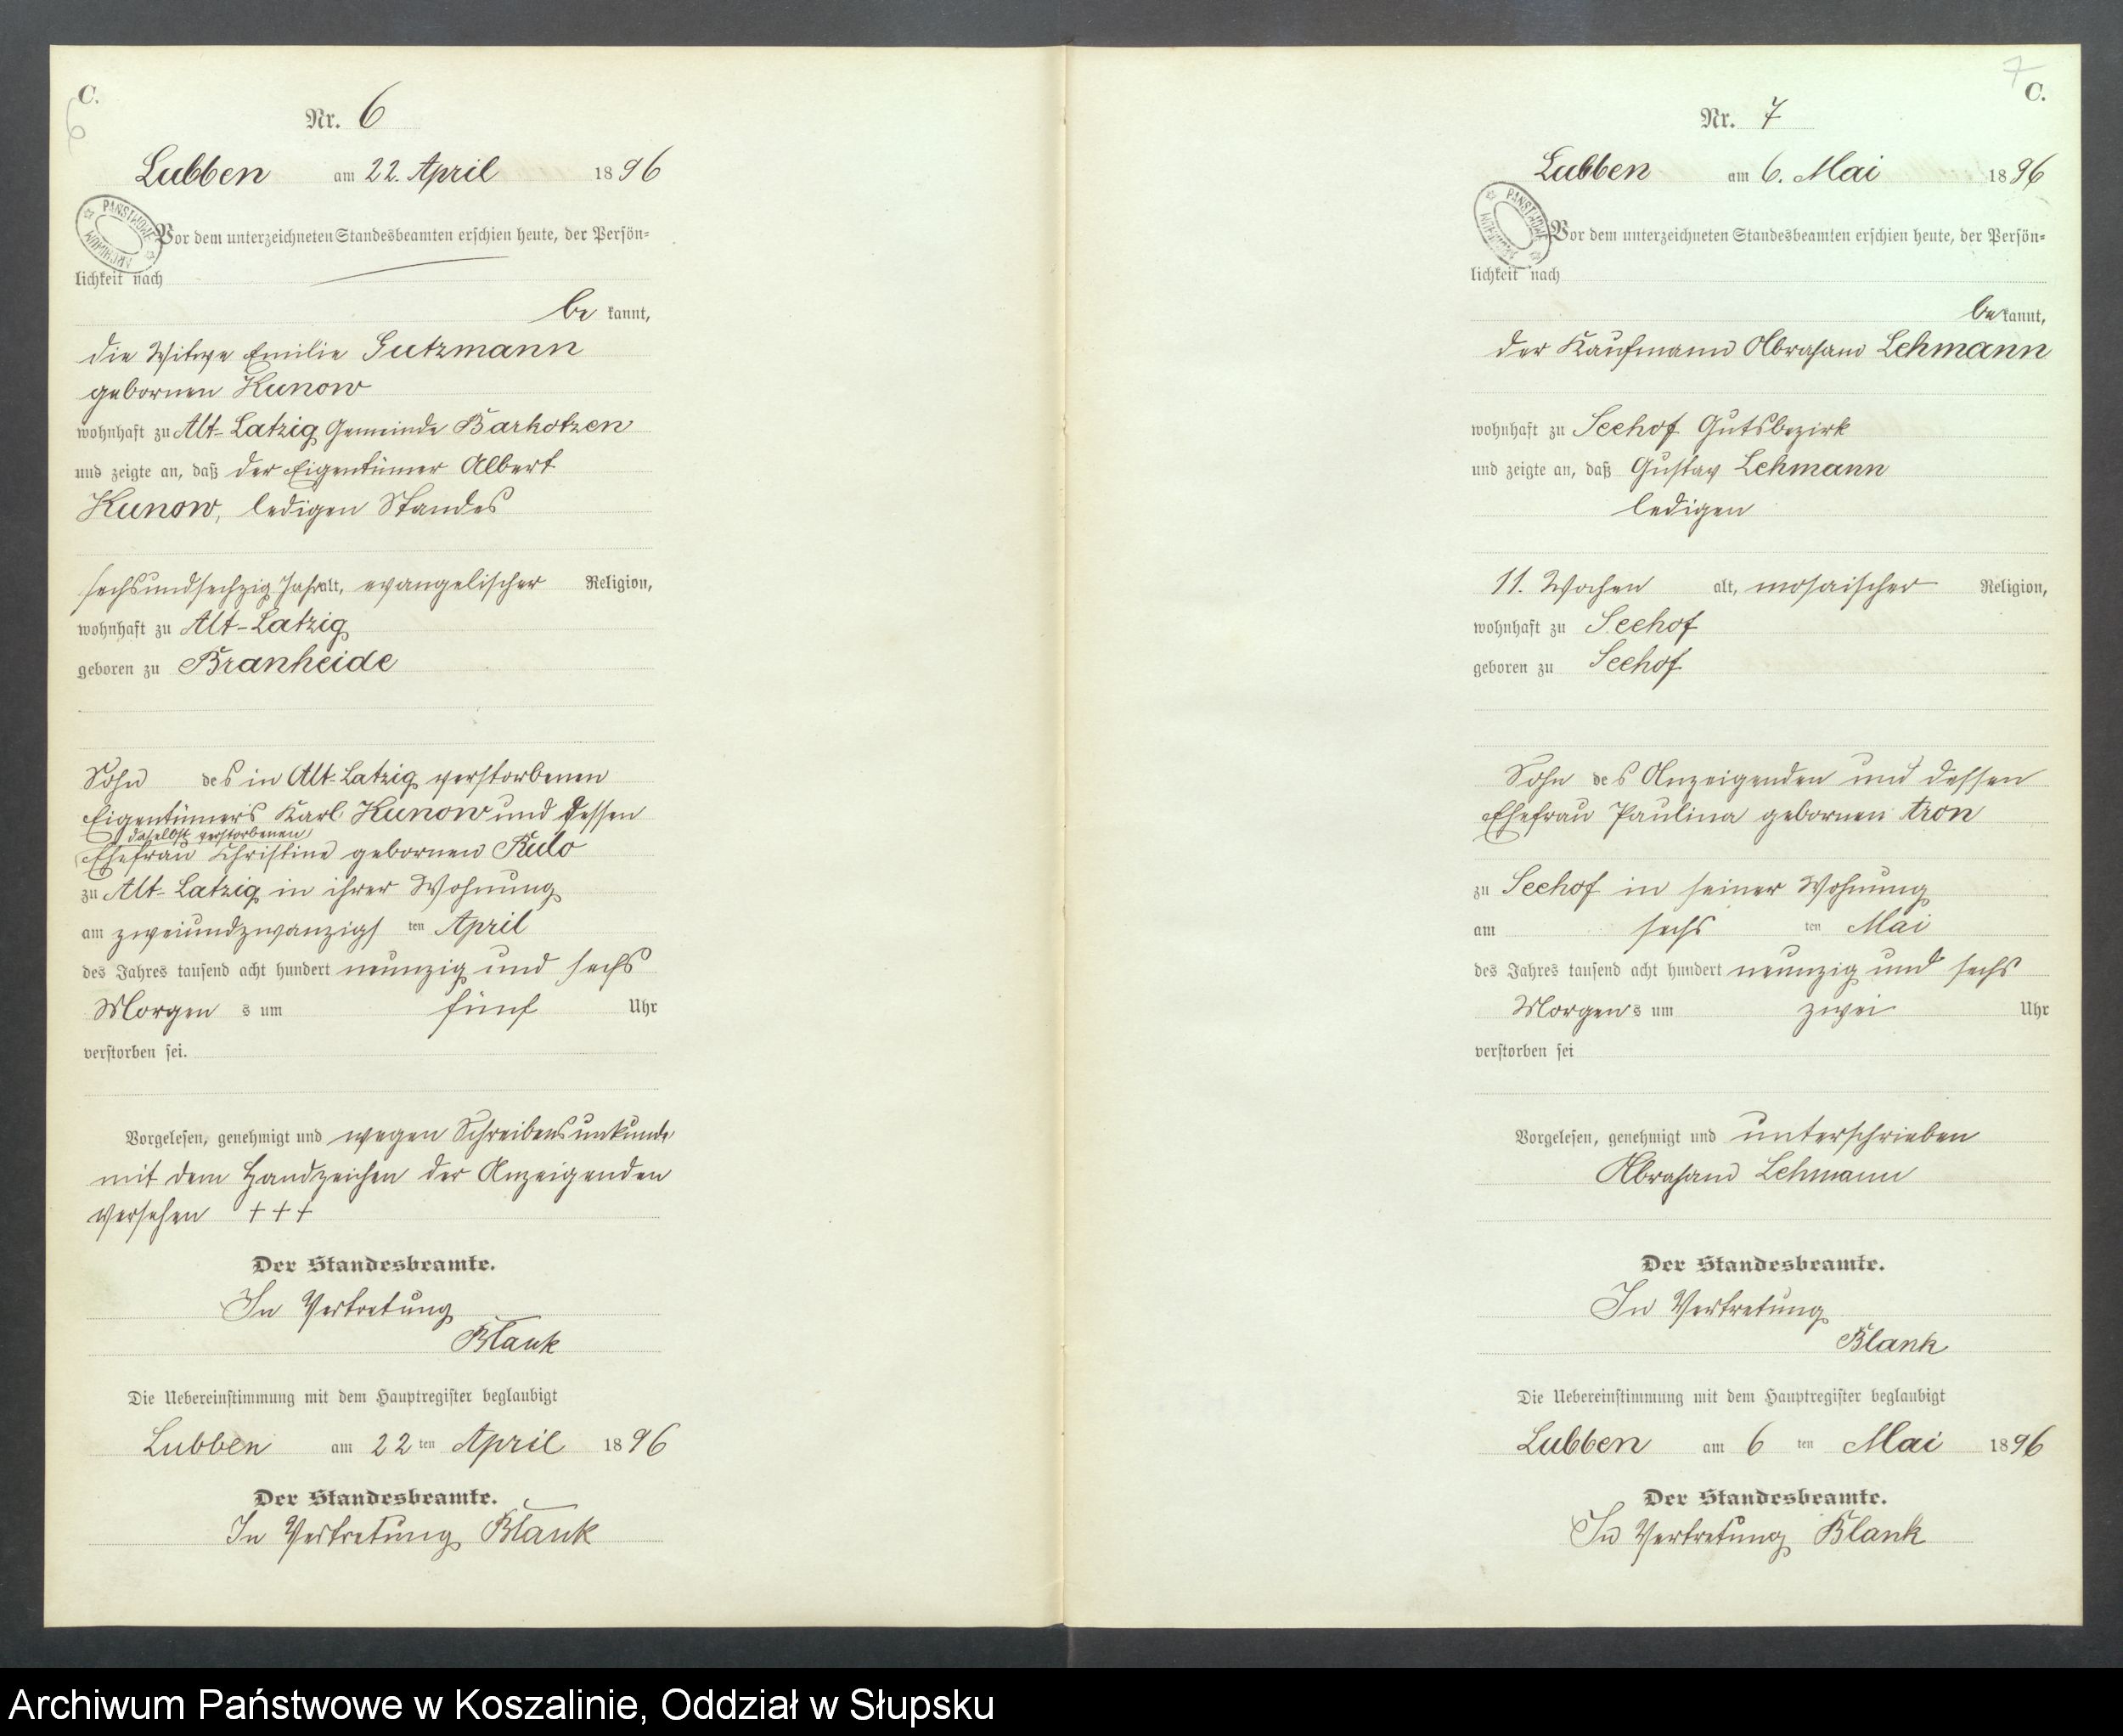 C.
6
Nr. 6
Lubben am 22. April 1896
PAŃSTWOWE ARCHIWUM
Vor dem unterzeichneten Standesbeamten erschien heute, der Persön-
lichkeit nach
be kannt,
die Witwe Emilie Gutzmann
gebornen Kunow
wohnhaft zu Alt-Latzig Gemeinde Barkotzen
und zeigte an, daß der Eigentümer Albert
Kunow, ledigen Standes
sechsundsechzig Jahr alt, evangelischer Religion,
wohnhaft zu Alt-Latzig
geboren zu Branheide
Sohn des in Alt-Latzig verstorbenen
Eigentümers Karl Kunow und dessen
daselbst verstorbenen
Ehefrau Christine gebornen
zu Alt-Latzig in ihrer Wohnung
am zweiundzwanzigs ten April
des Jahres tausend acht hundert neunzig und sechs
Morgen s um fünf Uhr
verstorben sei.
Vorgelesen, genehmigt und wegen Schreibensunkunde
mit dem Handzeichen der Anzeigenden
versehen +++
Der Standesbeamte.
In Vertretung
Blank
Die Uebereinstimmung mit dem Hauptregister beglaubigt
Lubben am 22 ten April 1896
Der Standesbeamte.
In Vertretung Blank
7
C.
Nr. 7
Lubben am 6. Mai 1896
PAŃSTWOWE ARCHIWUM
Vor dem unterzeichneten Standesbeamten erschien heute, der Persön-
lichkeit nach
be kannt,
der Kaufmann Abraham Lehmann
wohnhaft zu Seehof Gutsbezirk
und zeigte an, daß Gustav Lehmann
ledigen
11. Wochen alt, mosaischer Religion,
wohnhaft zu Seehof
geboren zu Seehof
Sohn des Anzeigenden und dessen
Ehefrau Paulina gebornen Aron
zu Seehof in seiner Wohnung
am sechs ten Mai
des Jahres tausend acht hundert neunzig und sechs
Morgen s um zwei Uhr
verstorben sei
Vorgelesen, genehmigt und unterschrieben
Abraham Lehmann
Der Standesbeamte.
In Vertretung
Blank
Die Uebereinstimmung mit dem Hauptregister beglaubigt
Lubben am 6 ten Mai 1896
Der Standesbeamte.
In Vertretung Blank
Archiwum Państwowe w Koszalinie, Oddział w Słupsku